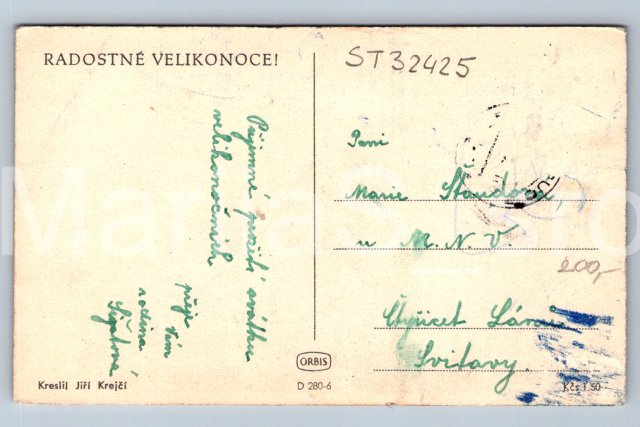 RADOSTNÉ VELIKONOCE!
ST32425
Příjemné prožití svátků
velikonočních
přeje Vám
rodina
Paní
Marie
u M. N. V.
Čtyřicet Lánů
Svitavy
200,-
ORBIS
Kreslil Jiří Krejčí
D 280-6
Kčs 1.50